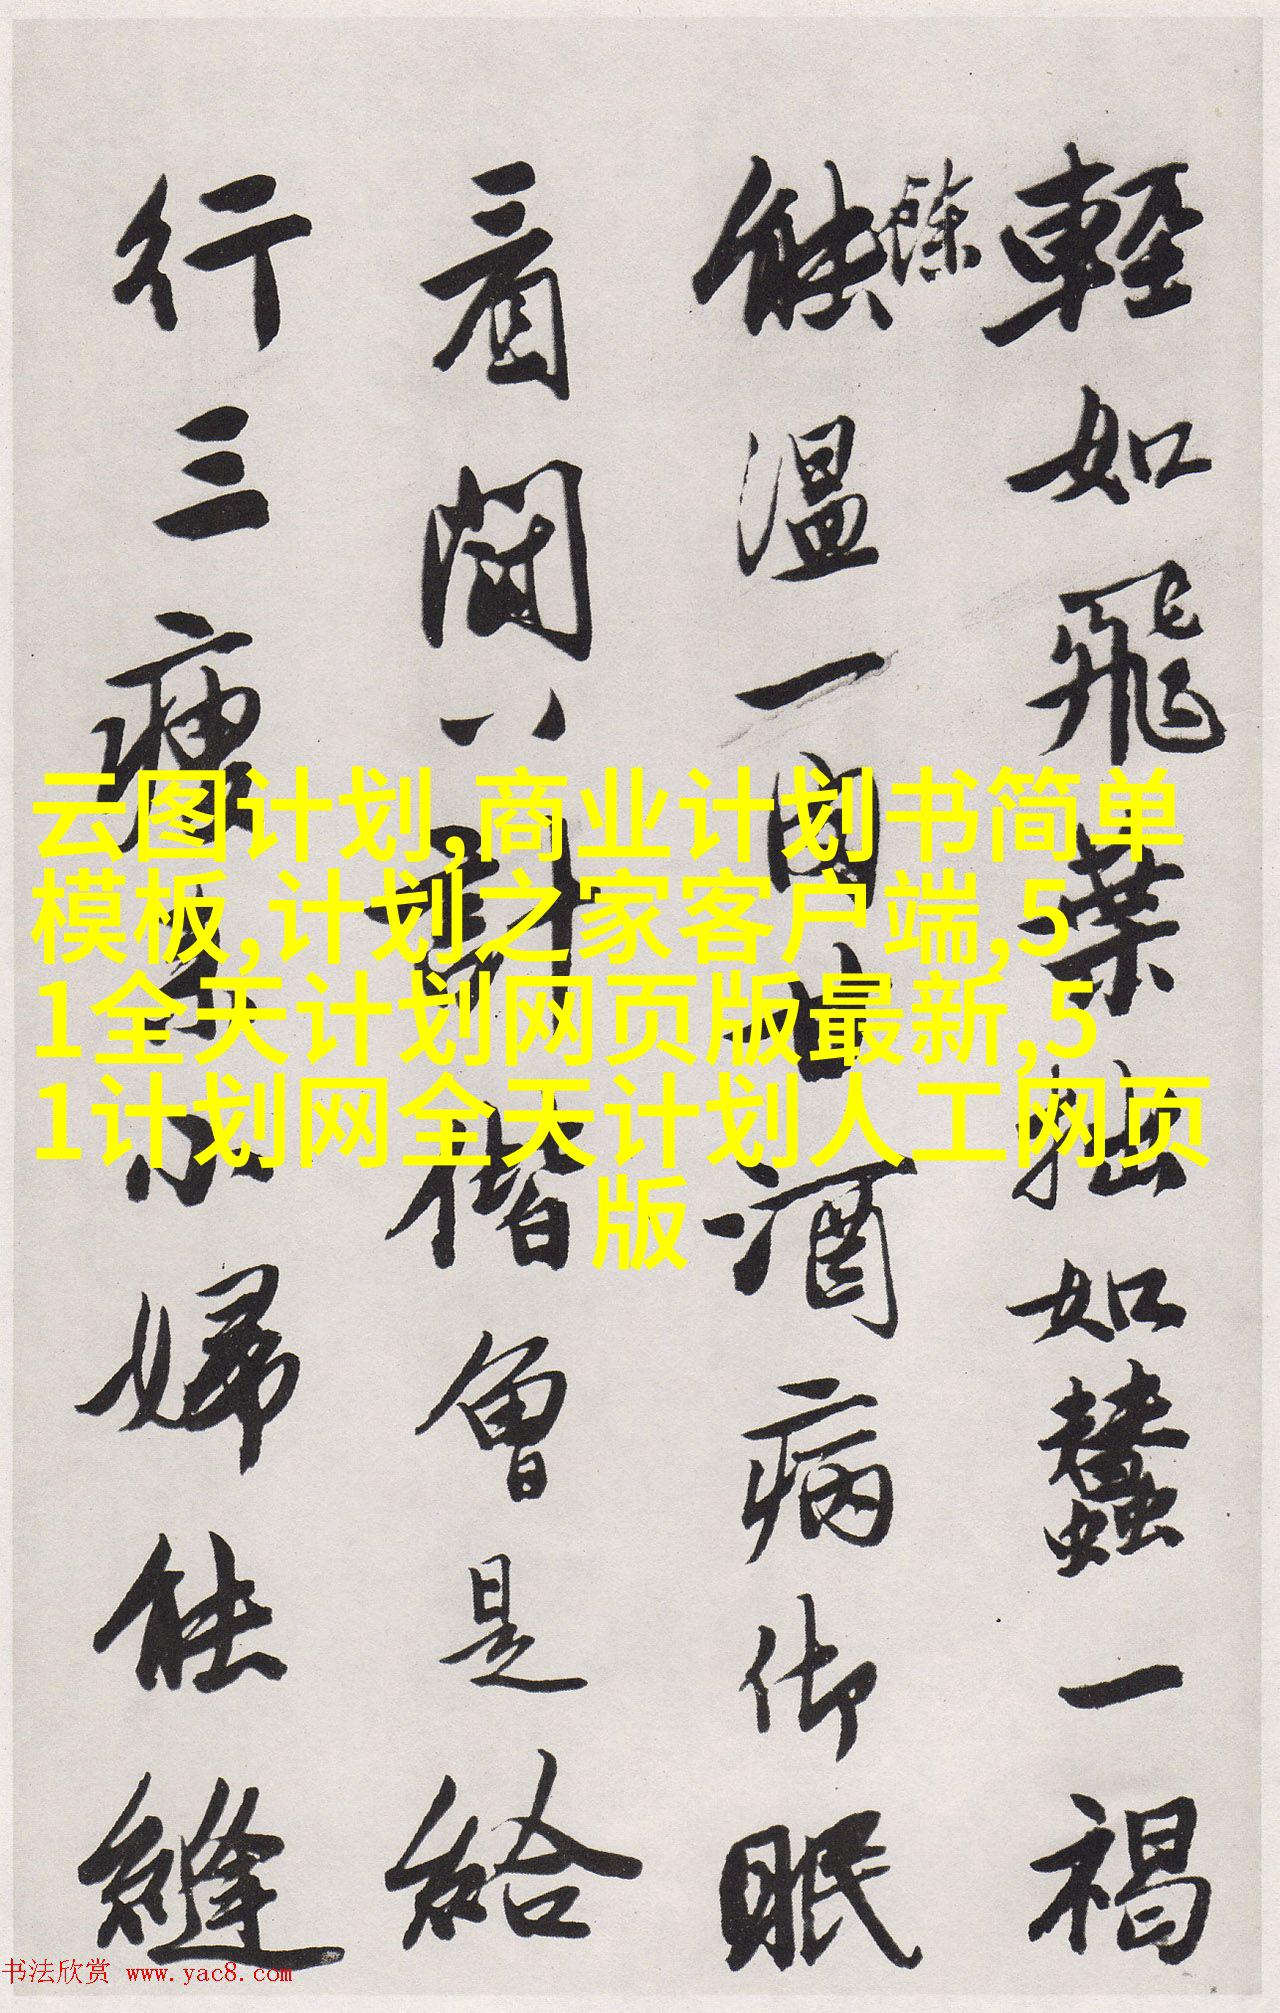 輕如飛葉拙如蠶一褐
餘
能溫一國古酒病御眠
看鬪八對偕會是給
行三瘦小婦能縫
云图计划,商业计划书简单
模板,计划之家客户端,5
1全天计划网页版最新,5
1计划网全天计划人工网页
版
书法欣赏 www.yac8.com